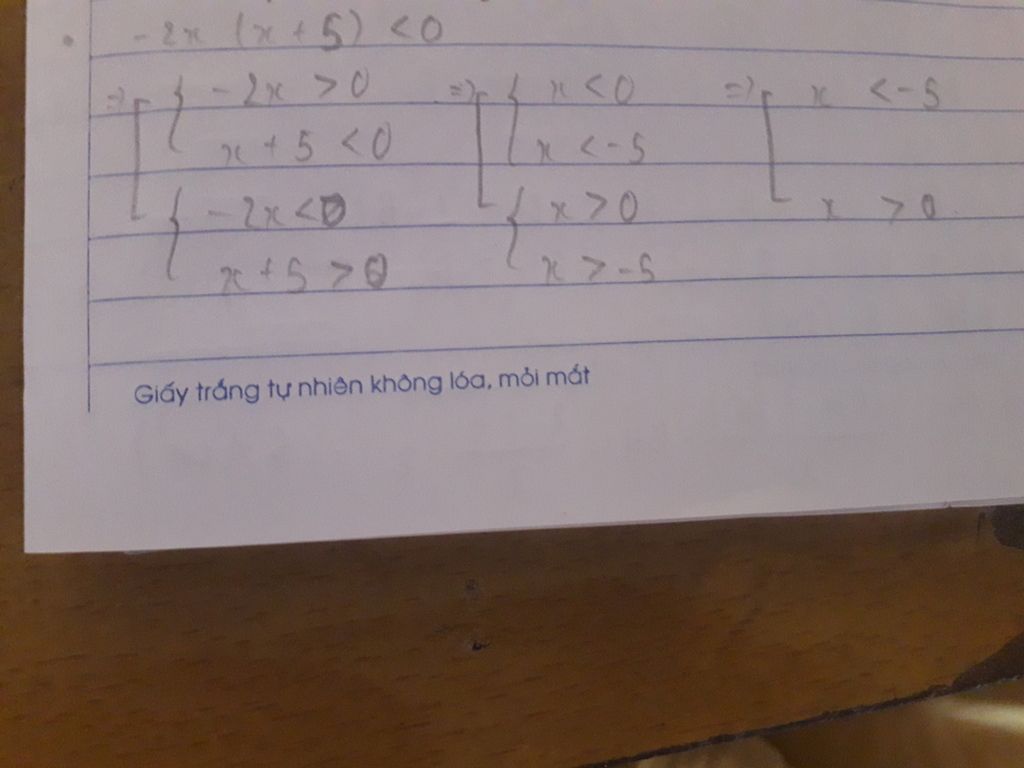 -2x (x + 5) < 0
=> -2x > 0 => x < 0 => x < -5
x + 5 < 0 x < -5
-2x < 0 x > 0 x > 0
x + 5 > 0 x > -5
Giấy trắng tự nhiên không lóa, mỏi mắt